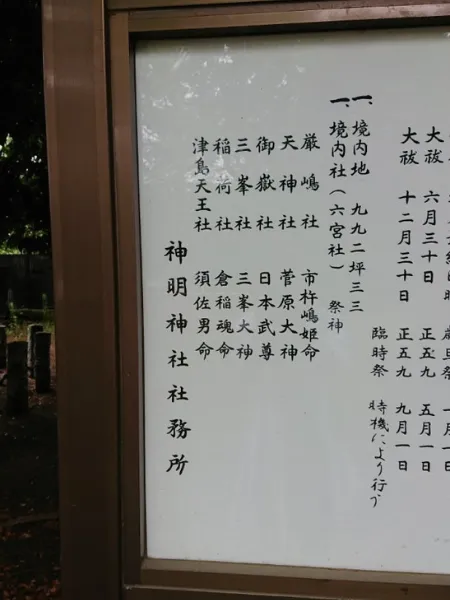 大祓 六月三十日 正五九 五月一日
大祓 十二月三十日 正五九 九月一日
臨時祭 時機により行う
一、境内地 九九二坪三三
一、境内社(六宮社) 祭神
厳嶋社 市杵嶋姫命
天神社 菅原大神
御嶽社 日本武尊
三峯社 三峯大神
稲荷社 倉稲魂命
津島天王社 須佐男命
神明神社社務所